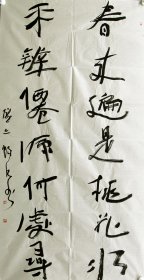 春来遍是桃花水
不辨僊源何處尋